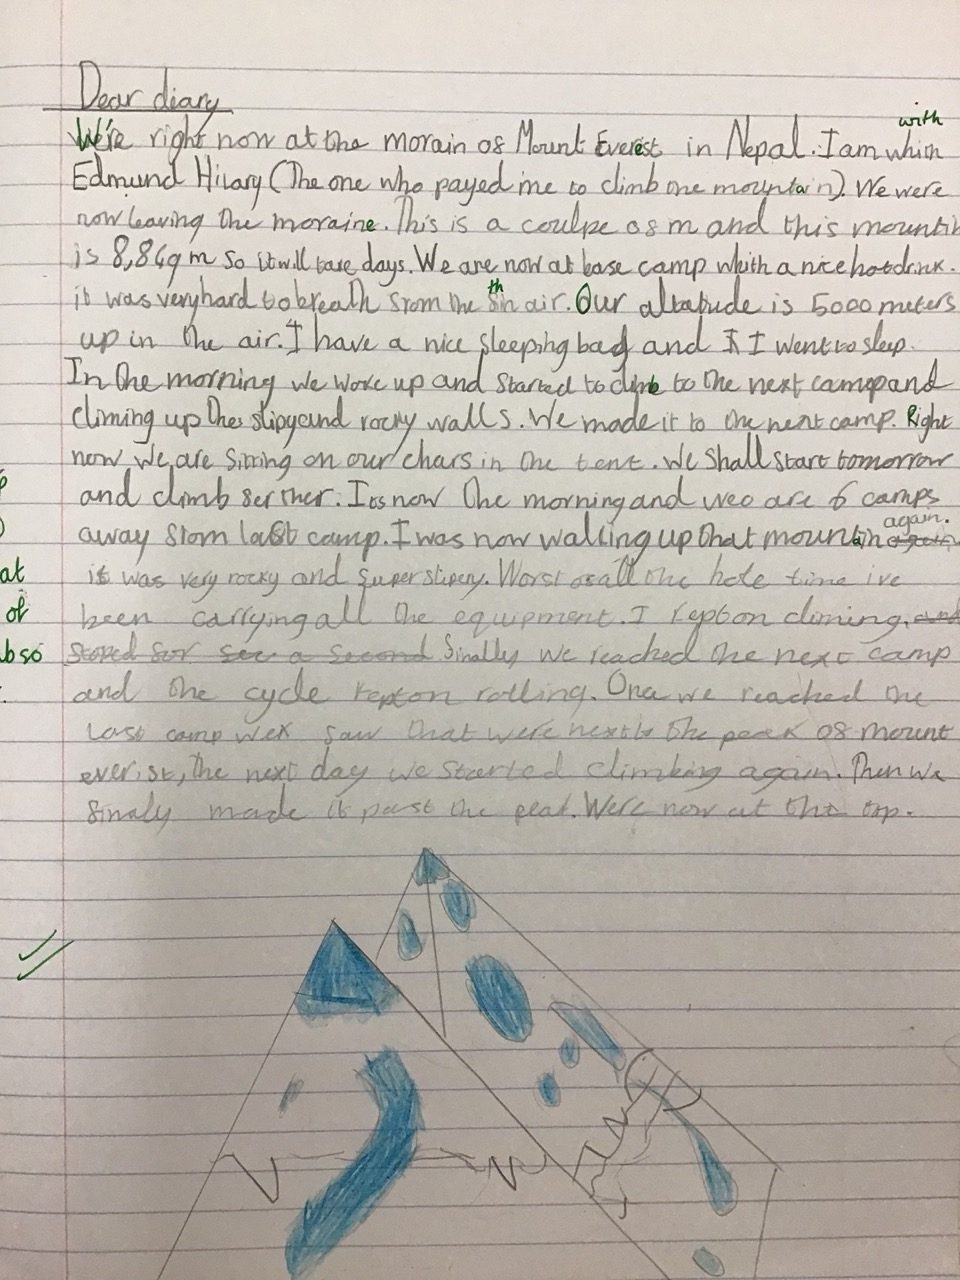 Dear diary
with
We're right now at the morain os Mount Everest in Nepal. I am which
Edmund Hilary (The one who payed me to climb the mountain). We were
now leaving the moraine. This is a coulpe os m and this mountin
is 8,849 m so it will take days. We are now at base camp whith a nice hot drink.
it was very hard to breath srom the thin air. Our altatude is 5000 meters
up in the air. I have a nice sleeping bag and I I went to sleep.
In the morning we woke up and started to climb to the next camp and
climing up the slipy and rocky walls. We made it to the next camp. Right
now we are sitting on our chars in the tent. We shall start tomorrow
and climb serther. Its now the morning and weo are 6 camps
again.
away srom last camp. I was now walling up that mountain again
at it was very rocky and super slipery. Worst os all the hole time ive
of been carrying all the equipment. I kept on climing, and
bso stoped sor sec a second Sinally we reached the next camp
and the cycle kept on rolling. Once we reached the
last camp wex saw that were next to the peak os mount
everist, the next day we started climbing again. Then we
sinaly made it past the peak. Were now at the top.